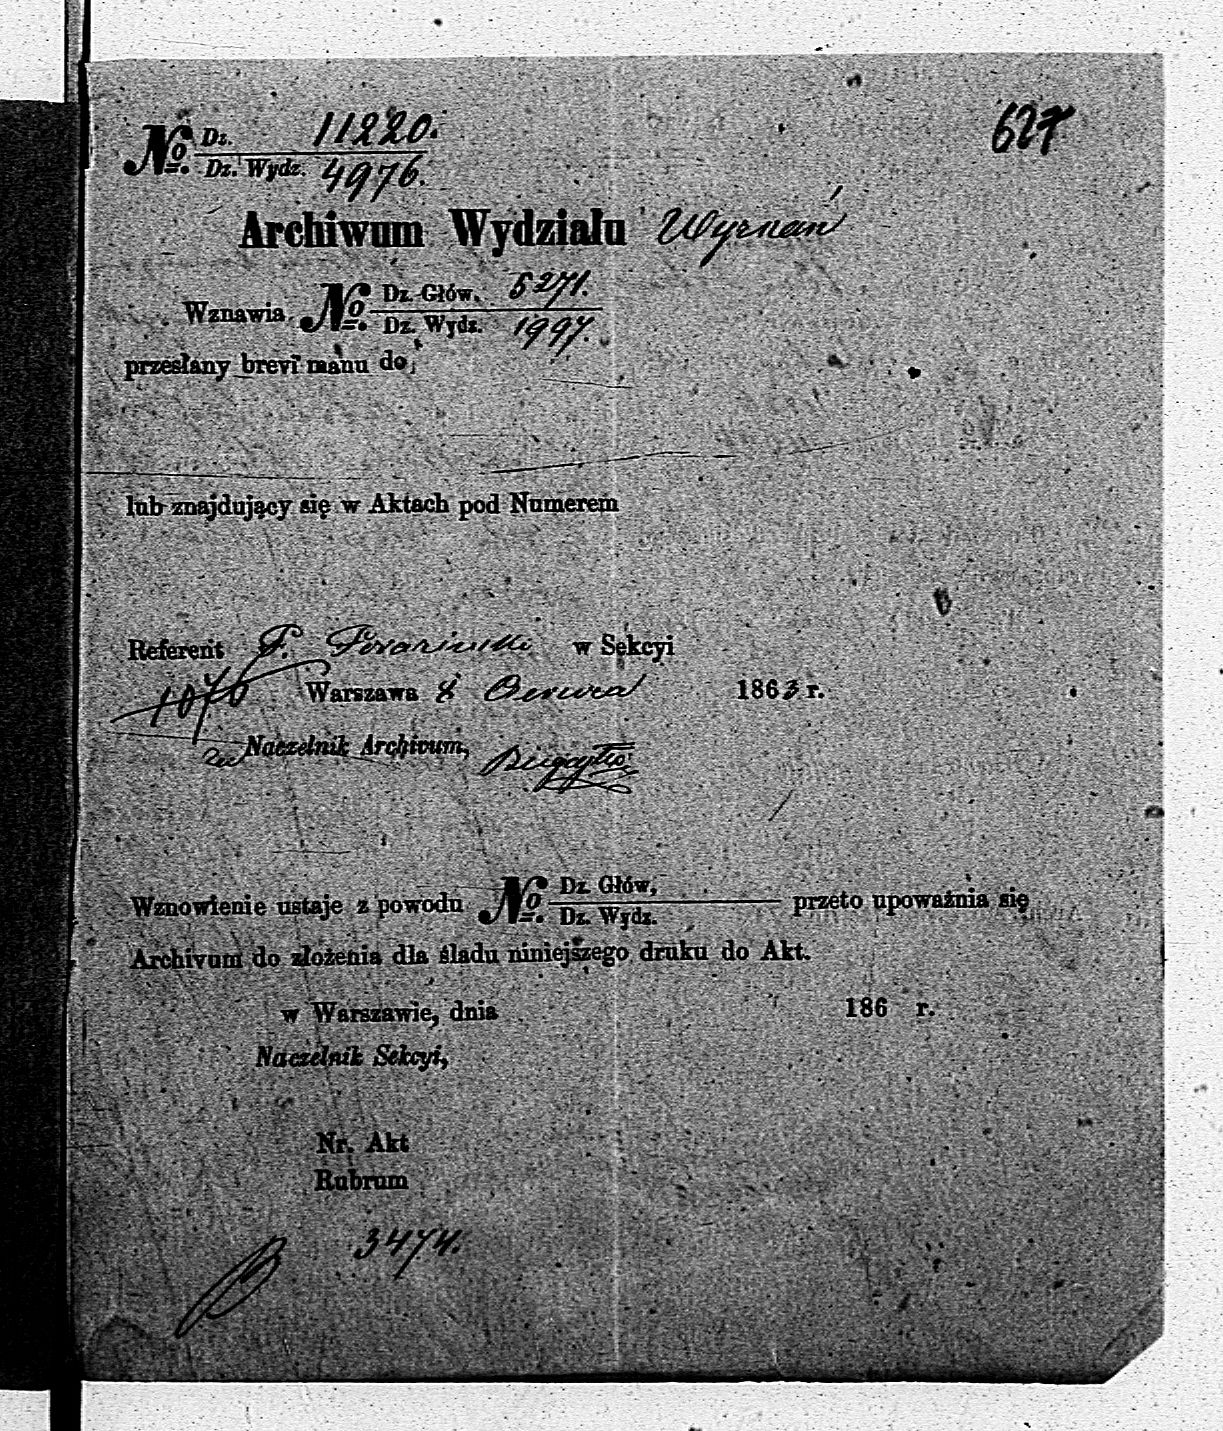 627
№ Dz. 11220.
Dz. Wydz. 4976.
Archiwum Wydziału Wyznań
Wznawia № Dz. Głów. 5271.
Dz. Wydz. 1997.
przesłany brevi manu do
lub znajdujący się w Aktach pod Numerem
Referent F. w Sekcyi
1076 Warszawa 8 Czerwca 1863 r.
Naczelnik Archivum,
Wznowienie ustaje z powodu № Dz. Głów, przeto upoważnia się
Dz. Wydz.
Archivum do złożenia dla śladu niniejszego druku do Akt.
w Warszawie, dnia 186 r.
Naczelnik Sekcyi,
Nr. Akt
Rubrum
3474.